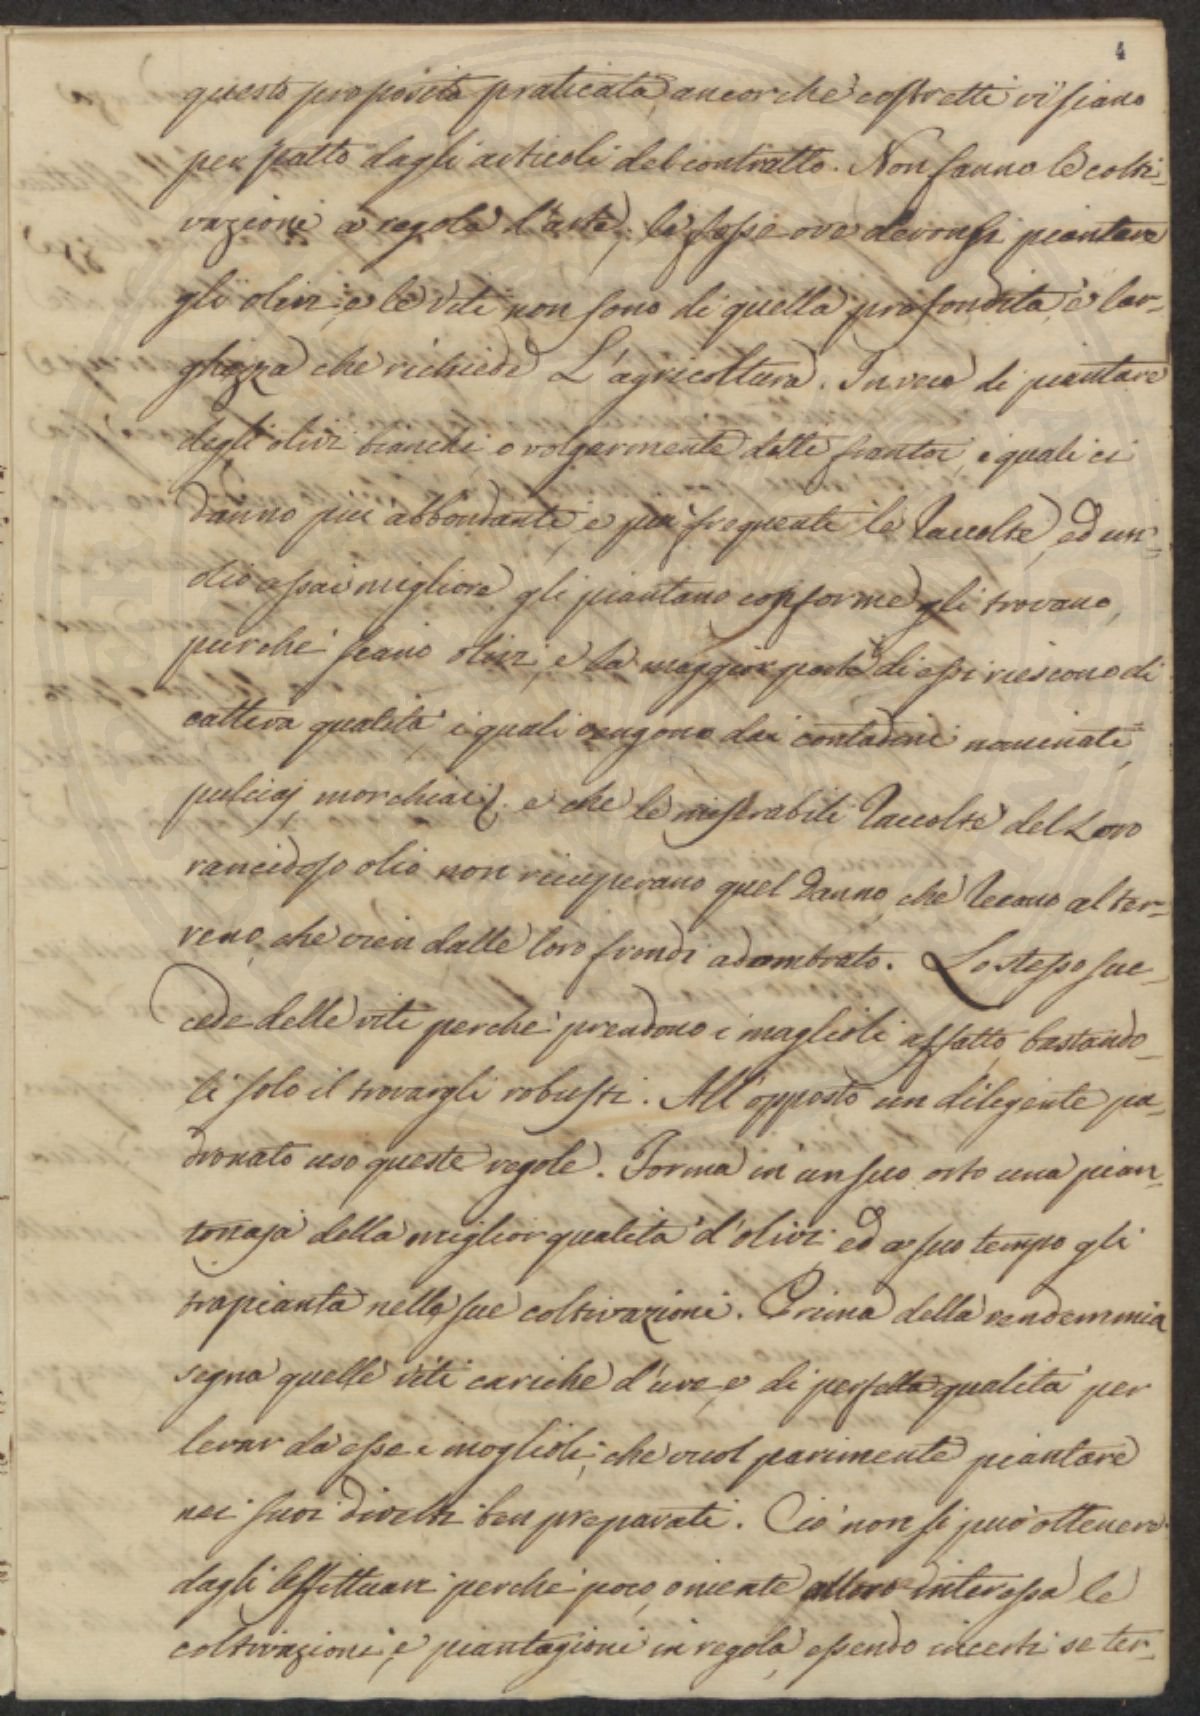 4
questo proposito praticata, ancorchè costretti vi siano
per patto dagli articoli del contratto. Non fanno le colti-
vazioni a regola d'arte; le fosse ove devonsi piantare
gli olivi, e le viti non sono di quella profondità, e lar-
ghezza che richiede L'agricoltura. In vece di piantare
degli olivi bianchi, o volgarmente detti frantoi, i quali ci
danno più abbondante, e più frequente le raccolte, ed un'
olio assai migliore gli piantano conforme gli trovano,
purchè siano olivi, e la maggior parte di essi riescono di
cattiva qualità, i quali vengono dai contadini nominati,
pulciaj, morchiai, e che le miserabili raccolte del Loro
rancidoso olio non recuperano quel danno, che recano al ter-
reno, che vien dalle loro frondi adombrato. Lo stesso suc-
cede delle viti perchè prendono i maglioli affatto bastando-
li solo il trovargli robusti. All'opposto un diligente pa-
dronato usa queste regole. Forma in un suo orto una pian-
tonaja della miglior qualità d'olivi ed a suo tempo gli
trapianta nelle sue coltivazioni. Prima della vendemmia
segna quelle viti cariche d'uve, e di perfetta qualità per
levar da esse i moglioli, che vuol parimente piantare
nei suoi divelti ben preparati. Ciò non si può ottenere
dagli Affittuari perchè poco, o niente a loro interessa le
coltivazioni, e piantagioni in regola, essendo incerti se ter-